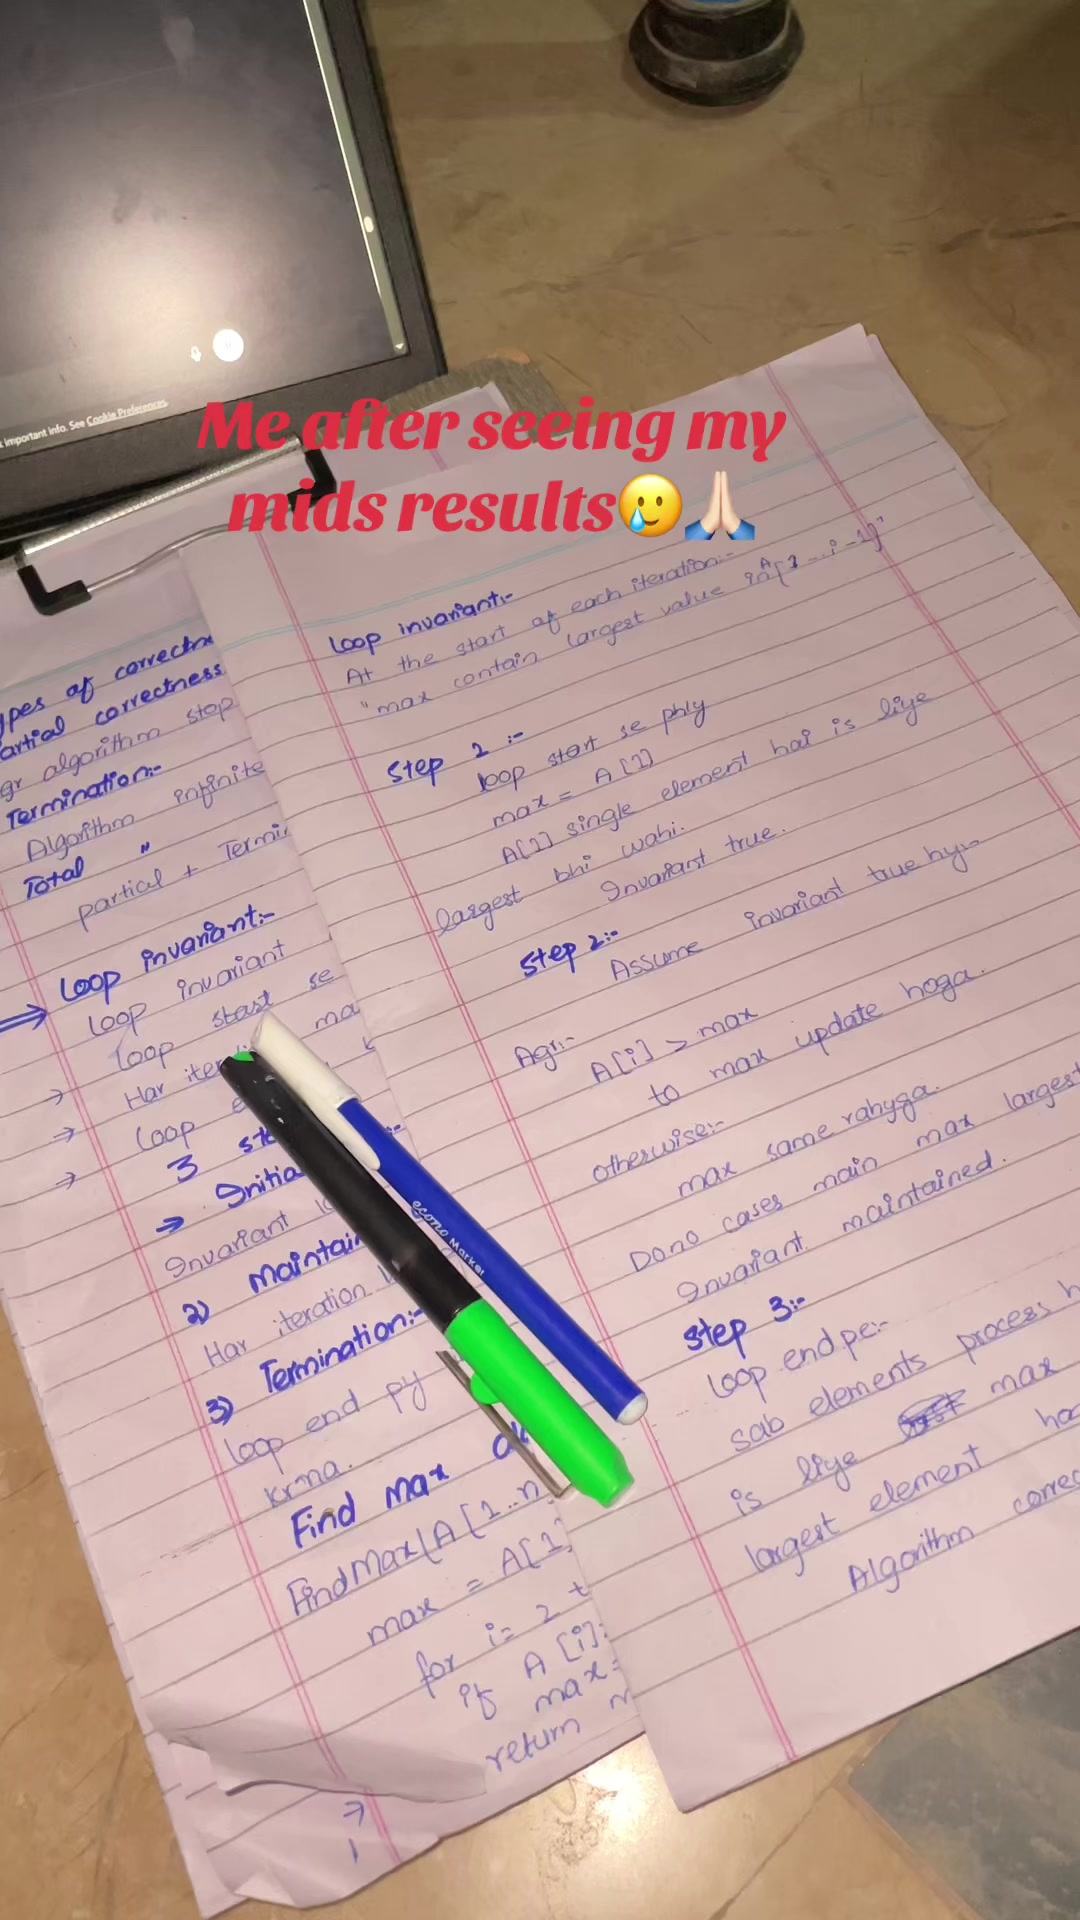 important info. See Cookie Preferences.
Me after seeing my
mids results🥲🙏🏻
ypes of correctne
artial correctness
gr algorithm stop
Termination:-
Algorithm infinite
Total "
partial + Termi
⇒ Loop invariant:-
Loop invariant
Loop start se
→ Har iter ma
→ Loop e
→ 3 ste
→ Initia
Invariant
2) Maintain
Har iteration
3) Termination:-
Loop end py
krna.
Find Max
FindMax(A[1..n
max = A[1]
for i= 2 t
if A[i]
max=
return m
Loop invariant:-
At the start of each iteration:-
"max contain largest value in A[1--.i-1]"
Step 1:-
loop start se phly
max = A[1]
A[1] single element hai is liye
largest bhi wahi.
Invariant true.
Step 2:-
Assume invariant true hy:-
Agr:-
A[i] > max
to max update hoga.
otherwise:-
max same rahyga.
Dono cases main max largest
Invariant maintained.
Step 3:-
Loop end pe:-
sab elements process h
is liye max
largest element ha
Algorithm correc
econo Marker